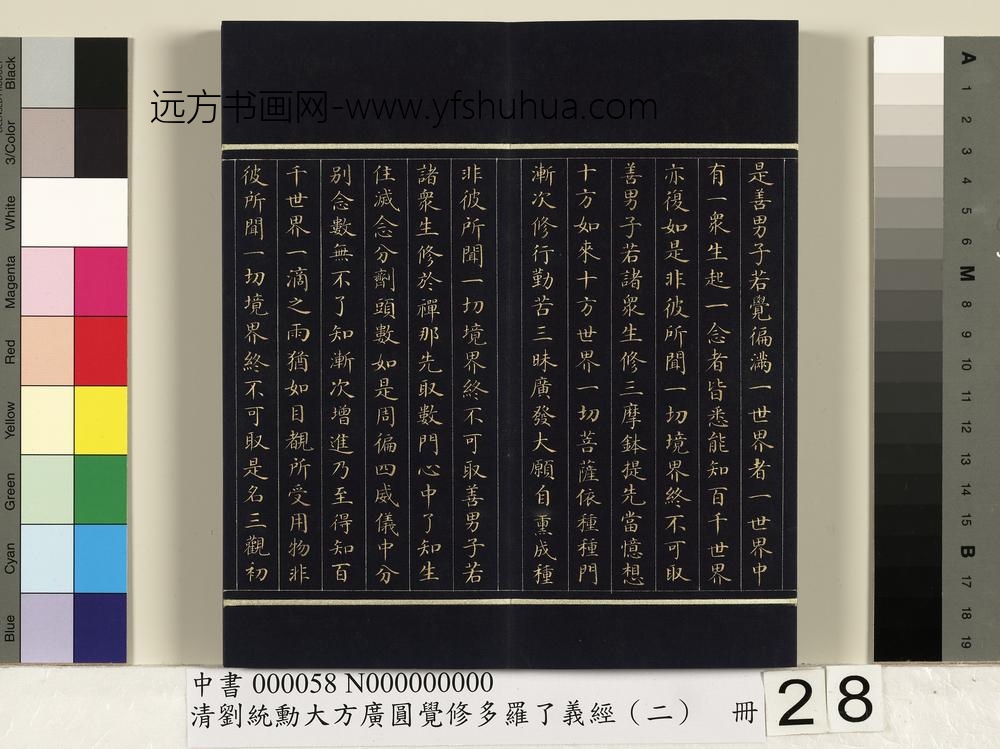 远方书画网-www.yfshuhua.com
是善男子若覺徧滿一世界者一世界中
有一衆生起一念者皆悉能知百千世界
亦復如是非彼所聞一切境界終不可取
善男子若諸衆生修三摩鉢提先當憶想
十方如來十方世界一切菩薩依種種門
漸次修行勤苦三昧廣發大願自熏成種
非彼所聞一切境界終不可取善男子若
諸衆生修於禪那先取數門心中了知生
住滅念分劑頭數如是周徧四威儀中分
別念數無不了知漸次增進乃至得知百
千世界一滴之雨猶如目覩所受用物非
彼所聞一切境界終不可取是名三觀初
Black
3/Color
White
Magenta
Red
Yellow
Green
Cyan
Blue
A
1
2
3
4
5
6
M
8
9
10
11
12
13
14
15
B
17
18
19
中書 000058 N000000000
清劉統勳大方廣圓覺修多羅了義經（二） 冊
28